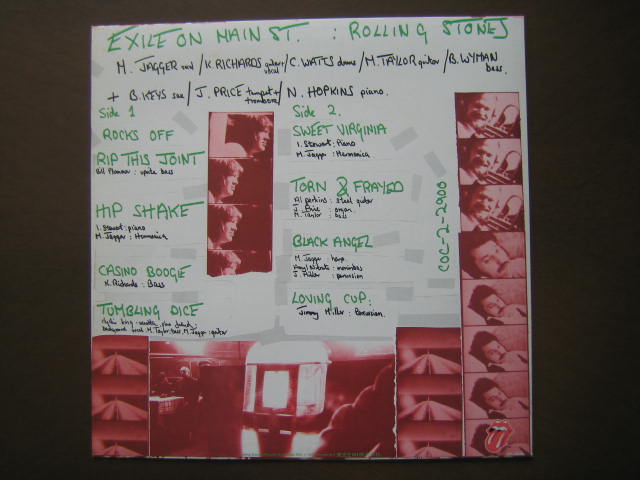 EXILE ON MAIN ST. : ROLLING STONES
M. JAGGER vocal / K. RICHARDS guitar + vocal / C. WATTS drums / M. TAYLOR guitar / B. WYMAN bass.
+ B. KEYS sax / J. PRICE trumpet + trombone / N. HOPKINS piano.
Side 1
ROCKS OFF
RIP THIS JOINT
Bill Plummer : upright bass
HIP SHAKE
I. Stewart : piano
M. Jagger : Harmonica
CASINO BOOGIE
K. Richards : Bass
TUMBLING DICE
M. Taylor : bass M. Jagger : guitar
Side 2.
SWEET VIRGINIA
I. Stewart : Piano
M. Jagger : Harmonica
TORN & FRAYED
Al Perkins : steel guitar
J. Price : organ
M. Taylor : bass
BLACK ANGEL
M. Jagger : harp
marimbas
J. Miller : percussion
LOVING CUP :
Jimmy Miller : Percussion.
COC-2-2900